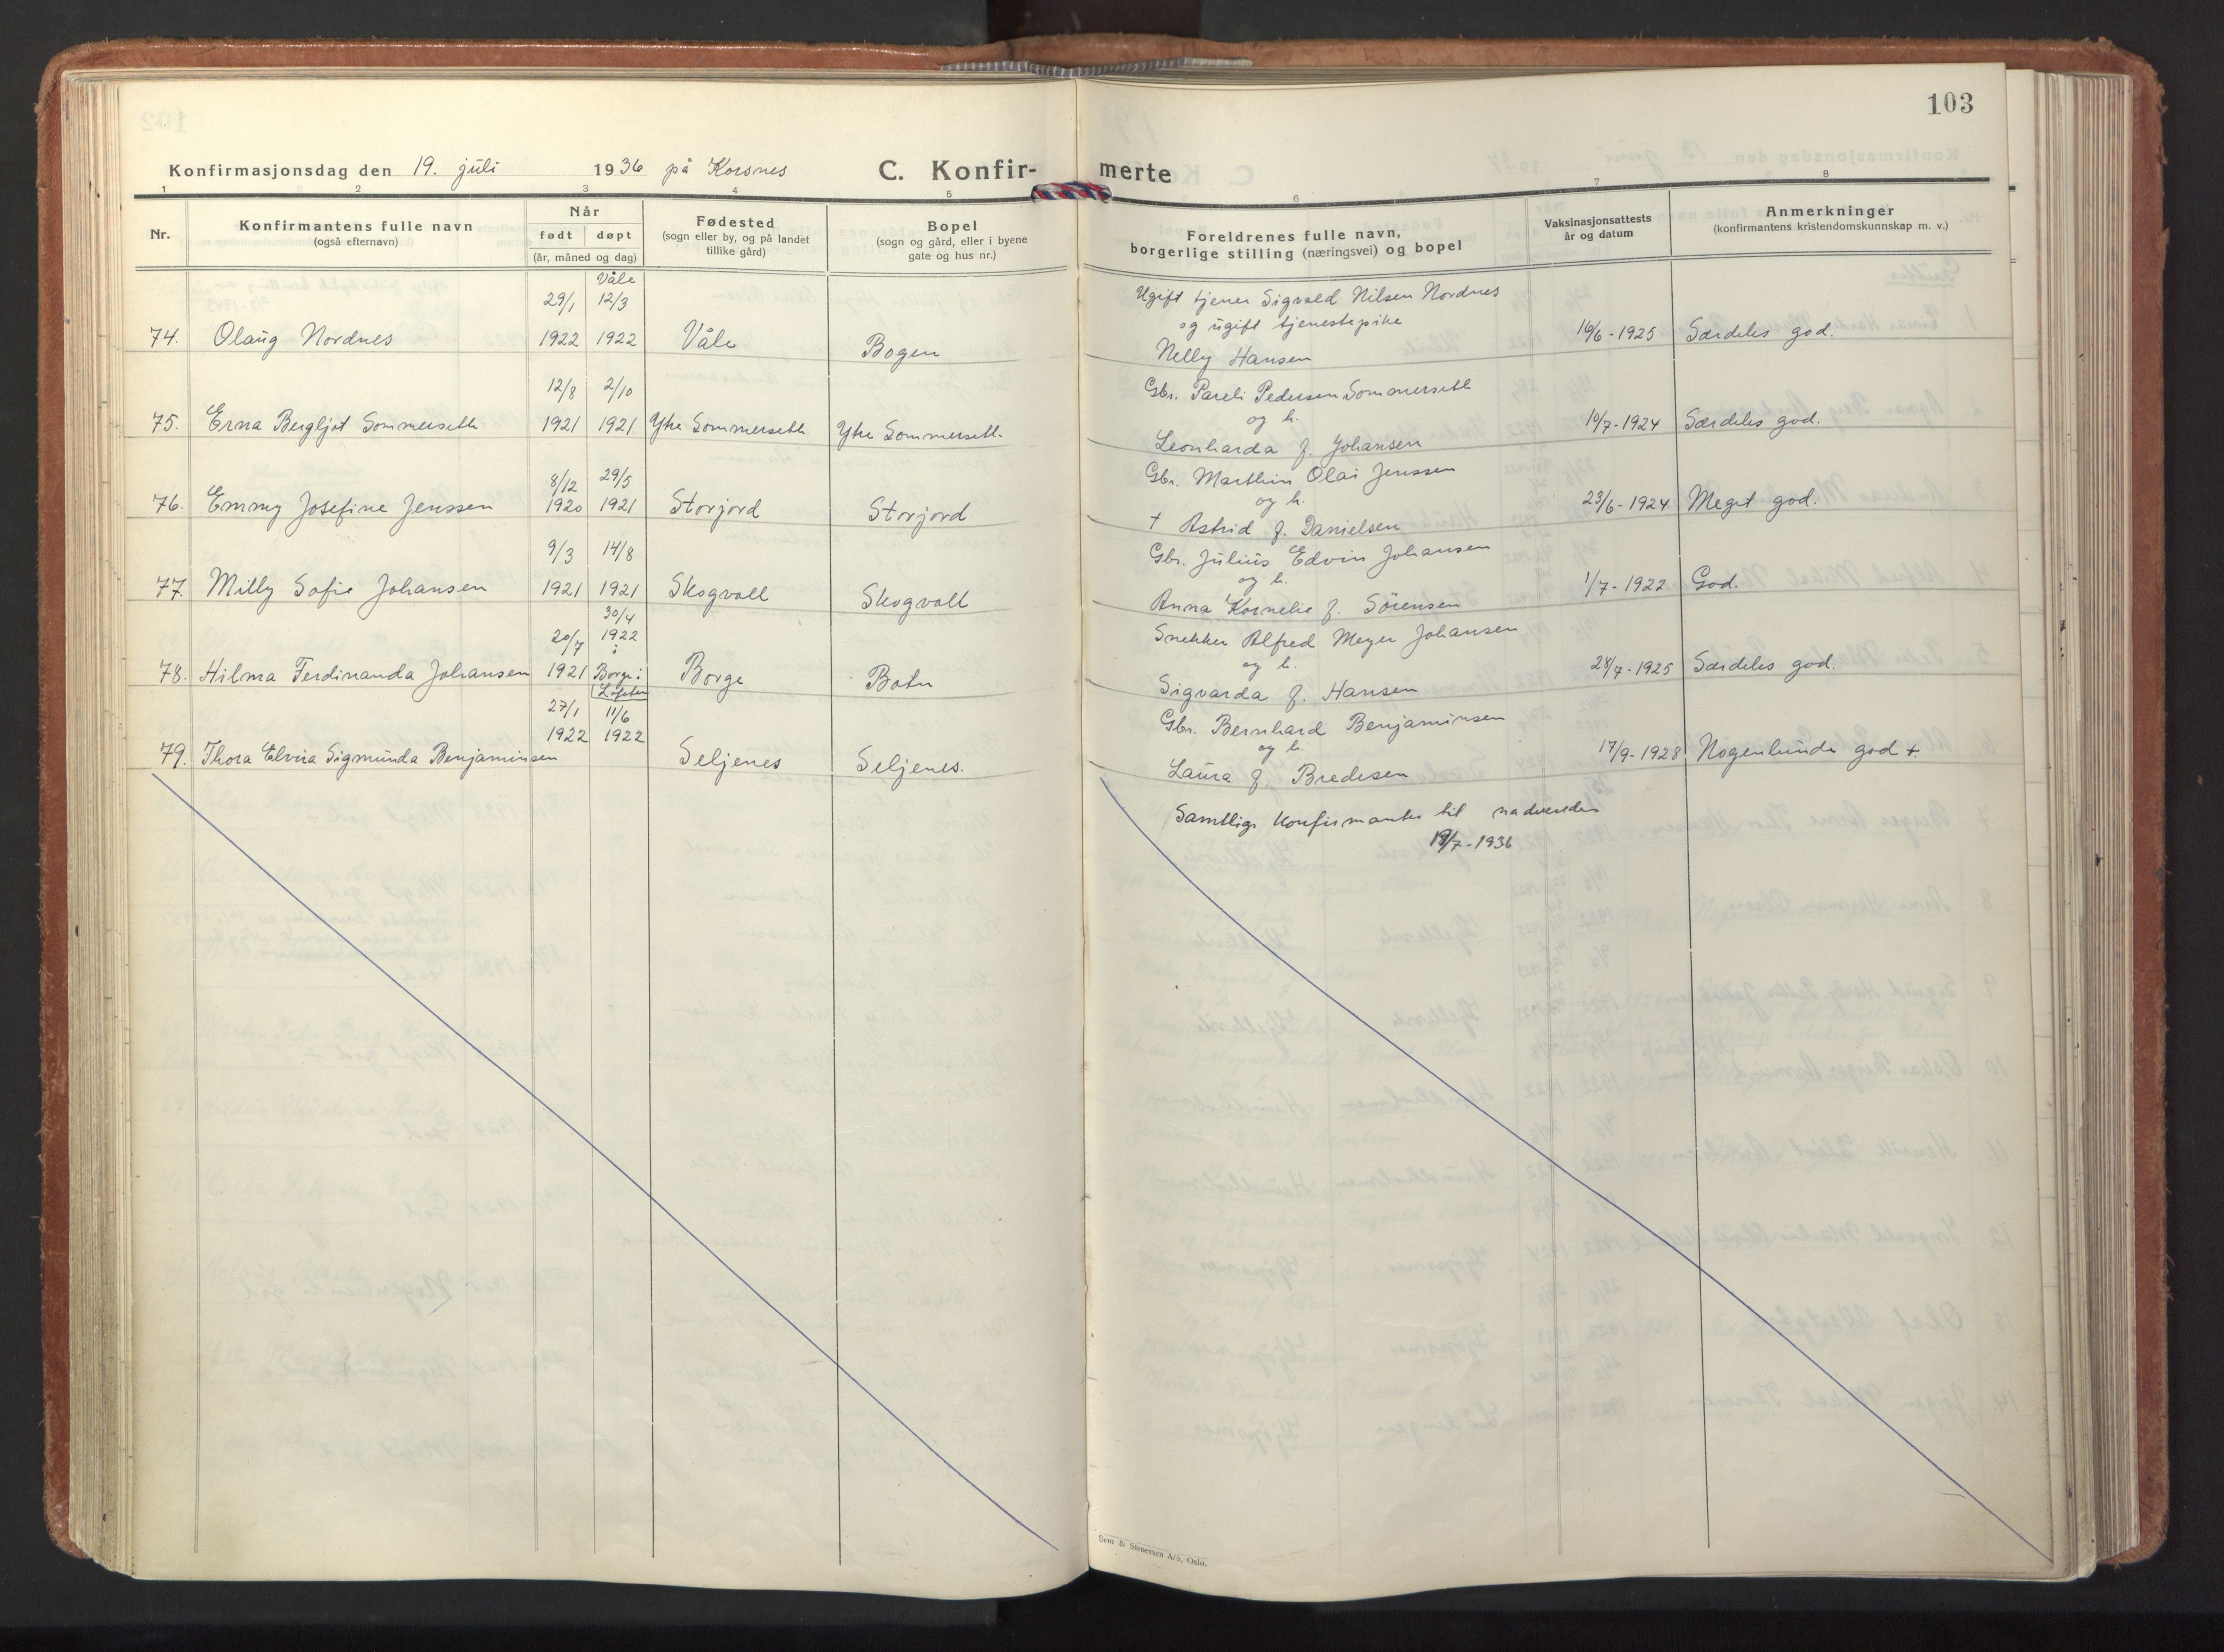 103
Konfirmasjonsdag den 19. juli 1936 på Korsnes C. Konfir- merte
1 2 3 4 5 6 7 8
Nr.
Konfirmantens fulle navn
(også efternavn)
Når
født døpt
(år, måned og dag)
Fødested
(sogn eller by, og på landet
tillike gård)
Bopel
(sogn og gård, eller i byene
gate og hus nr.)
Foreldrenes fulle navn,
borgerlige stilling (næringsvei) og bopel
Vaksinasjonsattests
år og datum
Anmerkninger
(konfirmantens kristendomskunnskap m. v.)
Våle
29/1 12/3
74. Olaug Nordnes 1922 1922 Våle Bogen
Ugift tjener Sigvald Nilsen Nordnes
og ugift tjenestepike
Nelly Hansen
16/6-1925 Særdeles god.
12/8 2/10
75. Erna Bergljot Sommerseth 1921 1921 Ytre Sommerseth Ytre Sommerseth
Gbr. Pareli Pedersen Sommerseth
og h.
Leonharda f. Johansen
10/7-1924 Særdeles god.
8/12 29/5
76. Emmy Josefine Jenssen 1920 1921 Storjord Storjord
Gbr. Marthin Olai Jenssen
og h.
† Astrid f. Danielsen
23/6-1924 Meget god.
9/3 14/8
77. Milly Sofie Johansen 1921 1921 Skogvoll Skogvoll
Gbr. Julius Edvin Johansen
og h.
Anna Kornelie f. Sörensen
1/7-1922 God.
30/4
20/7 1922
i
78. Hilma Ferdinanda Johansen 1921 Borge i Borge Botn
Lofoten
Snekker Alfred Meyer Johansen
og h.
Sigvarda f. Hansen
28/7-1925 Særdeles god.
27/1 11/6
1922 1922
79. Thora Elvira Sigmunda Benjaminsen Seljenes Seljenes.
Gbr. Bernhard Benjaminsen
og h.
Laura f. Bredesen
17/9-1928 Nogenlunde god +.
Samtlige konfirmanter til nadverden
19/7-1936
Sem & Stenersen A/S, Oslo.